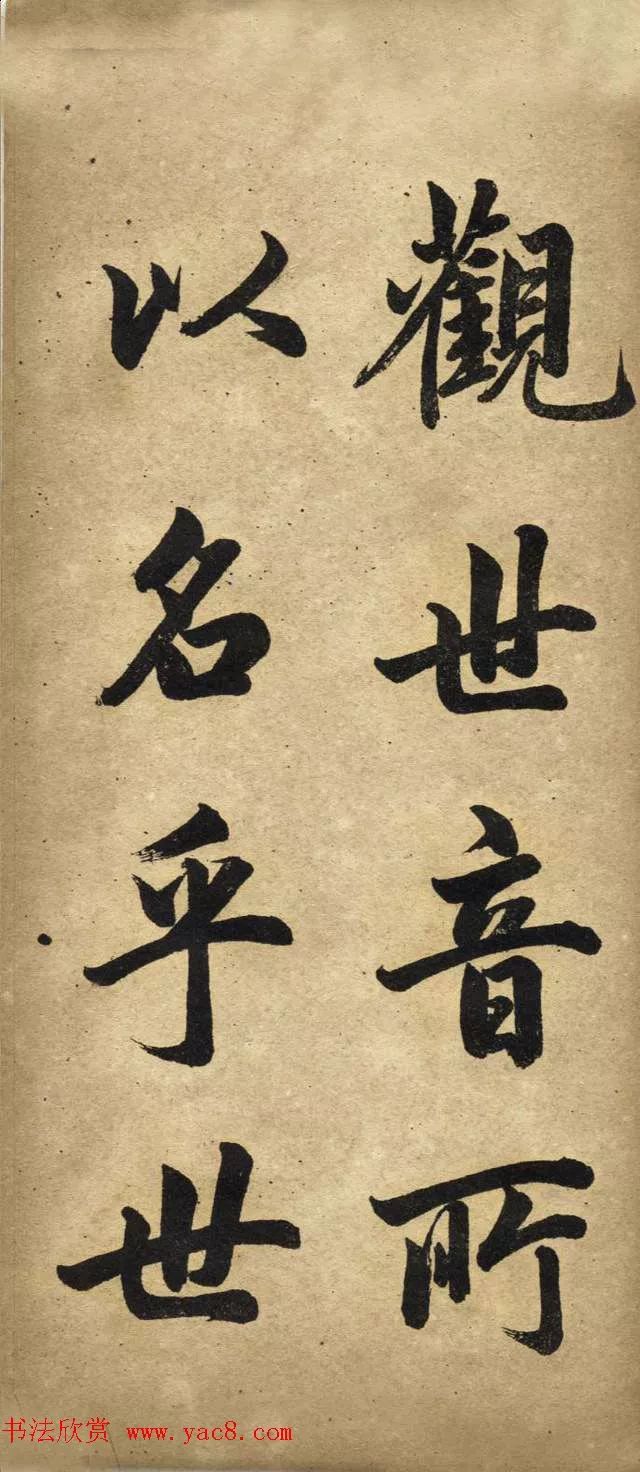 觀世音所
以名乎世
书法欣赏 www.yac8.com